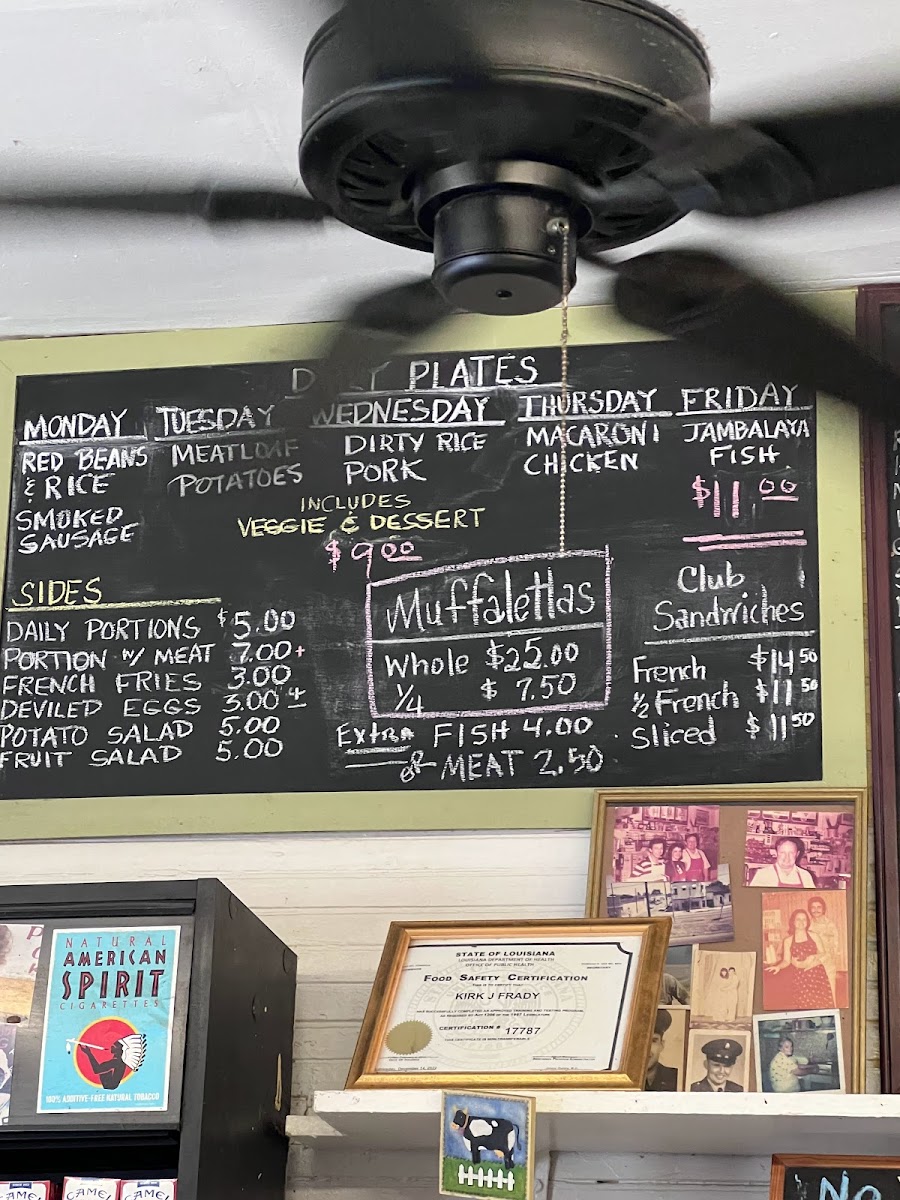 PLATES
MONDAY
RED BEANS
& RICE
SMOKED
SAUSAGE
TUESDAY
MEATLOAF
POTATOES
WEDNESDAY
DIRTY RICE
PORK
THURSDAY
MACARONI
CHICKEN
FRIDAY
JAMBALAYA
FISH
$11 00
INCLUDES
VEGGIE & DESSERT
$9 00
SIDES
DAILY PORTIONS $5.00
PORTION W/ MEAT 7.00+
FRENCH FRIES 3.00
DEVILED EGGS 3.00
POTATO SALAD 5.00
FRUIT SALAD 5.00
Muffalettas
Whole $25.00
1/4 $ 7.50
Extra FISH 4.00
or MEAT 2.50
Club
Sandwiches
French $14 50
1/2 French $11 50
sliced $11 50
NATURAL
AMERICAN
SPIRIT
CIGARETTES
100% ADDITIVE-FREE NATURAL TOBACCO
CAMEL
CAMEL
CAMEL
STATE OF LOUISIANA
LOUISIANA DEPARTMENT OF HEALTH
OFFICE OF PUBLIC HEALTH
FOOD SAFETY CERTIFICATION
THIS IS TO CERTIFY THAT
KIRK J FRADY
HAS SUCCESSFULLY COMPLETED AN APPROVED TRAINING AND TESTING PROGRAM
CERTIFICATION # 17787
No